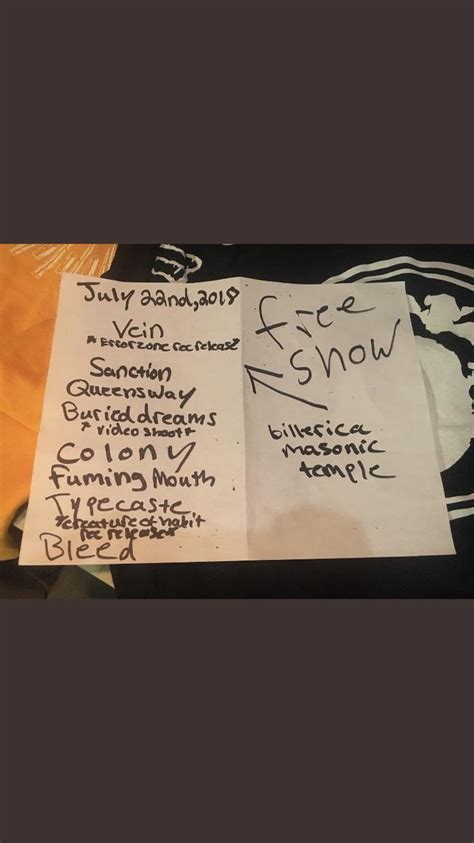 July 22nd, 2018
Vein
* Errorzone rec release*
Sanction
Queensway
Buried dreams
* video shoot *
Colony
Fuming Mouth
Typecaste
*creature of habit
rec release*
Bleed
free
show
billerica
masonic
temple